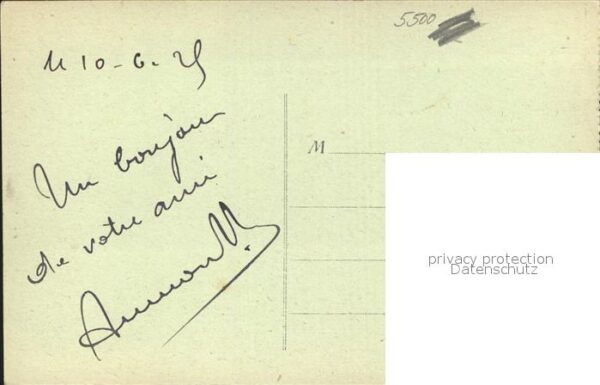 5500
10-6.25
Un bonjour
de votre ami
M
privacy protection
Datenschutz